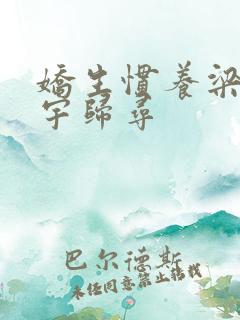 嬌生慣養梁
宇歸尋
巴尔德斯
未经同意禁止转载